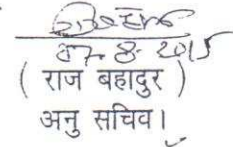 07.8.2015
( राज बहादुर )
अनु सचिव।